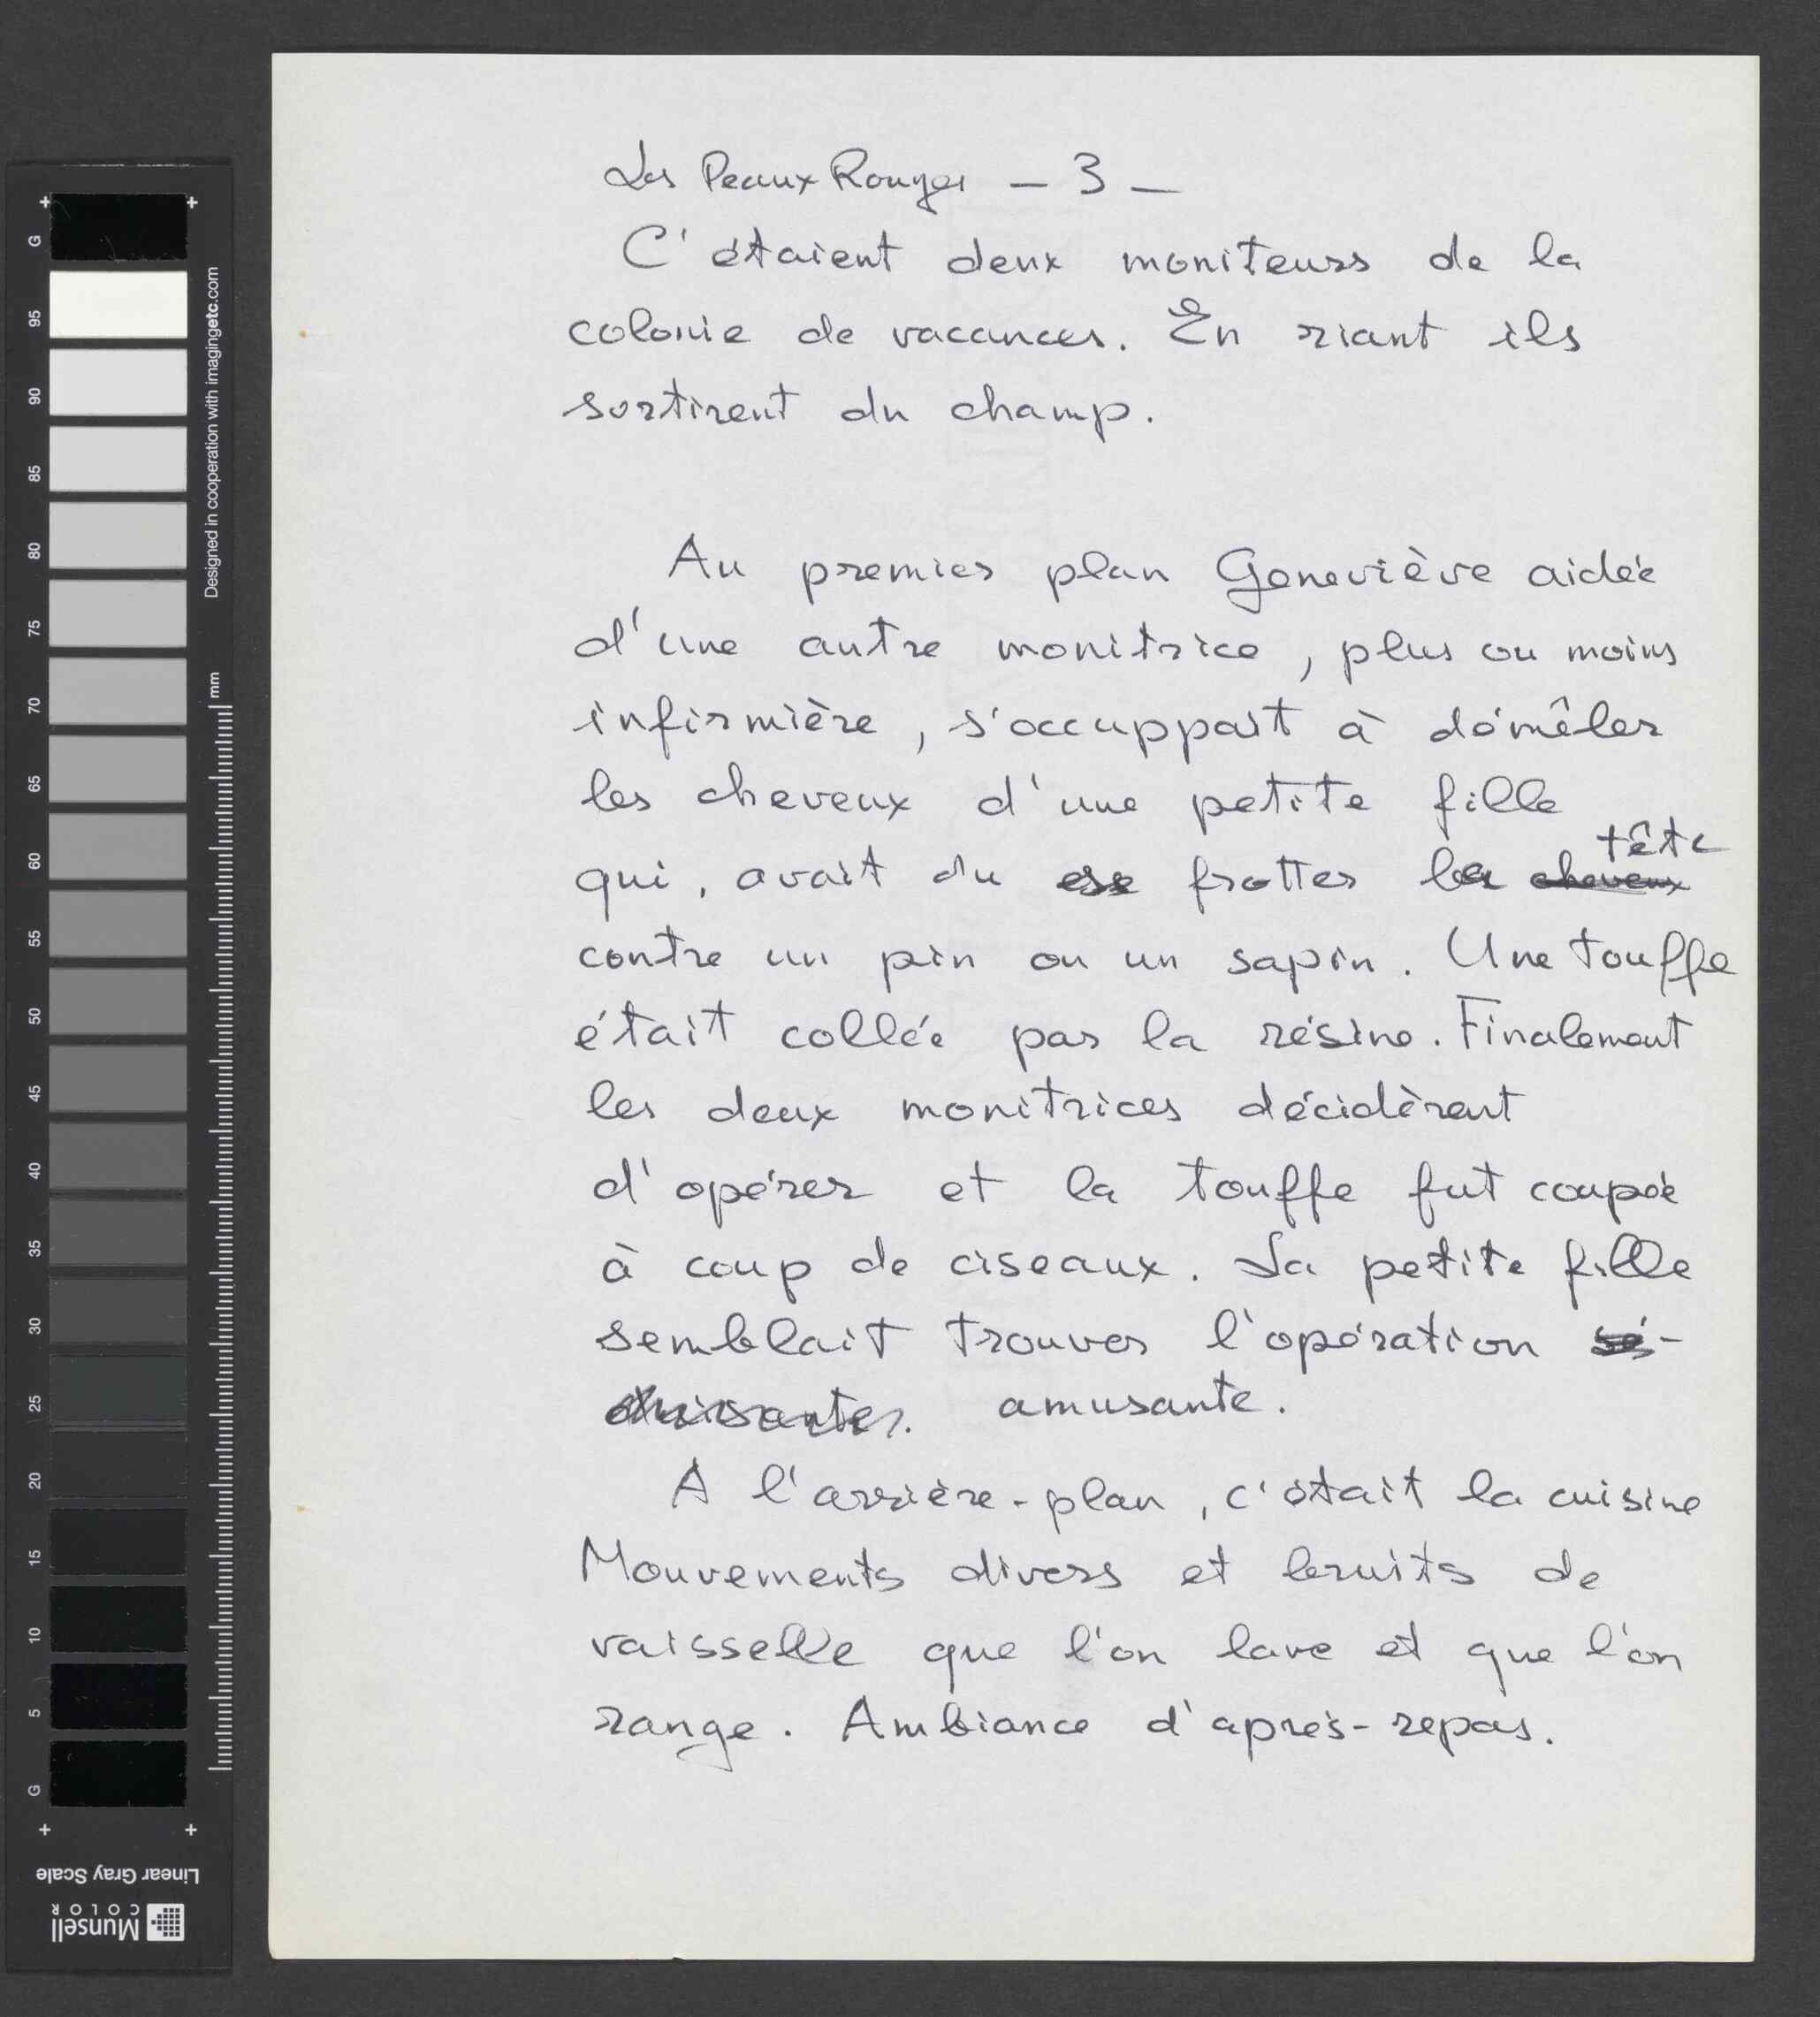 Les Peaux Rouges — 3 —
C'étaient deux moniteurs de la
colonie de vacances. En riant ils
sortirent du champ.
Au premier plan Geneviève aidée
d'une autre monitrice, plus ou moins
infirmière, s'occuppait à démêler
les cheveux d'une petite fille
tête
qui, avait du se frotter la cheveux
contre un pin ou un sapin. Une touffe
était collée par la résine. Finalement
les deux monitrices décidèrent
d'opérer et la touffe fut coupée
à coup de ciseaux. La petite fille
semblait trouver l'opération sé-
duisante. amusante.
A l'arrière-plan, c'était la cuisine
Mouvements divers et bruits de
vaisselle que l'on lave et que l'on
range. Ambiance d'après-repas.
G
95
90
85
80
75
70
65
60
55
50
45
40
35
30
25
20
15
10
5
G
Designed in cooperation with imagingetc.com
mm
Linear Gray Scale
Munsell
COLOR